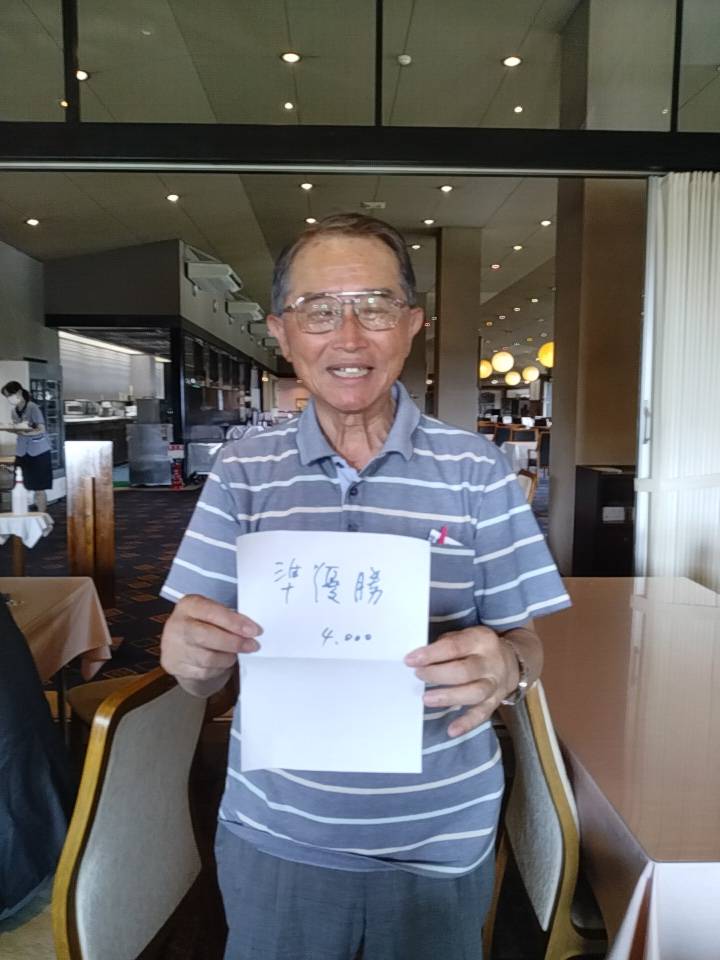 準優勝
4.000